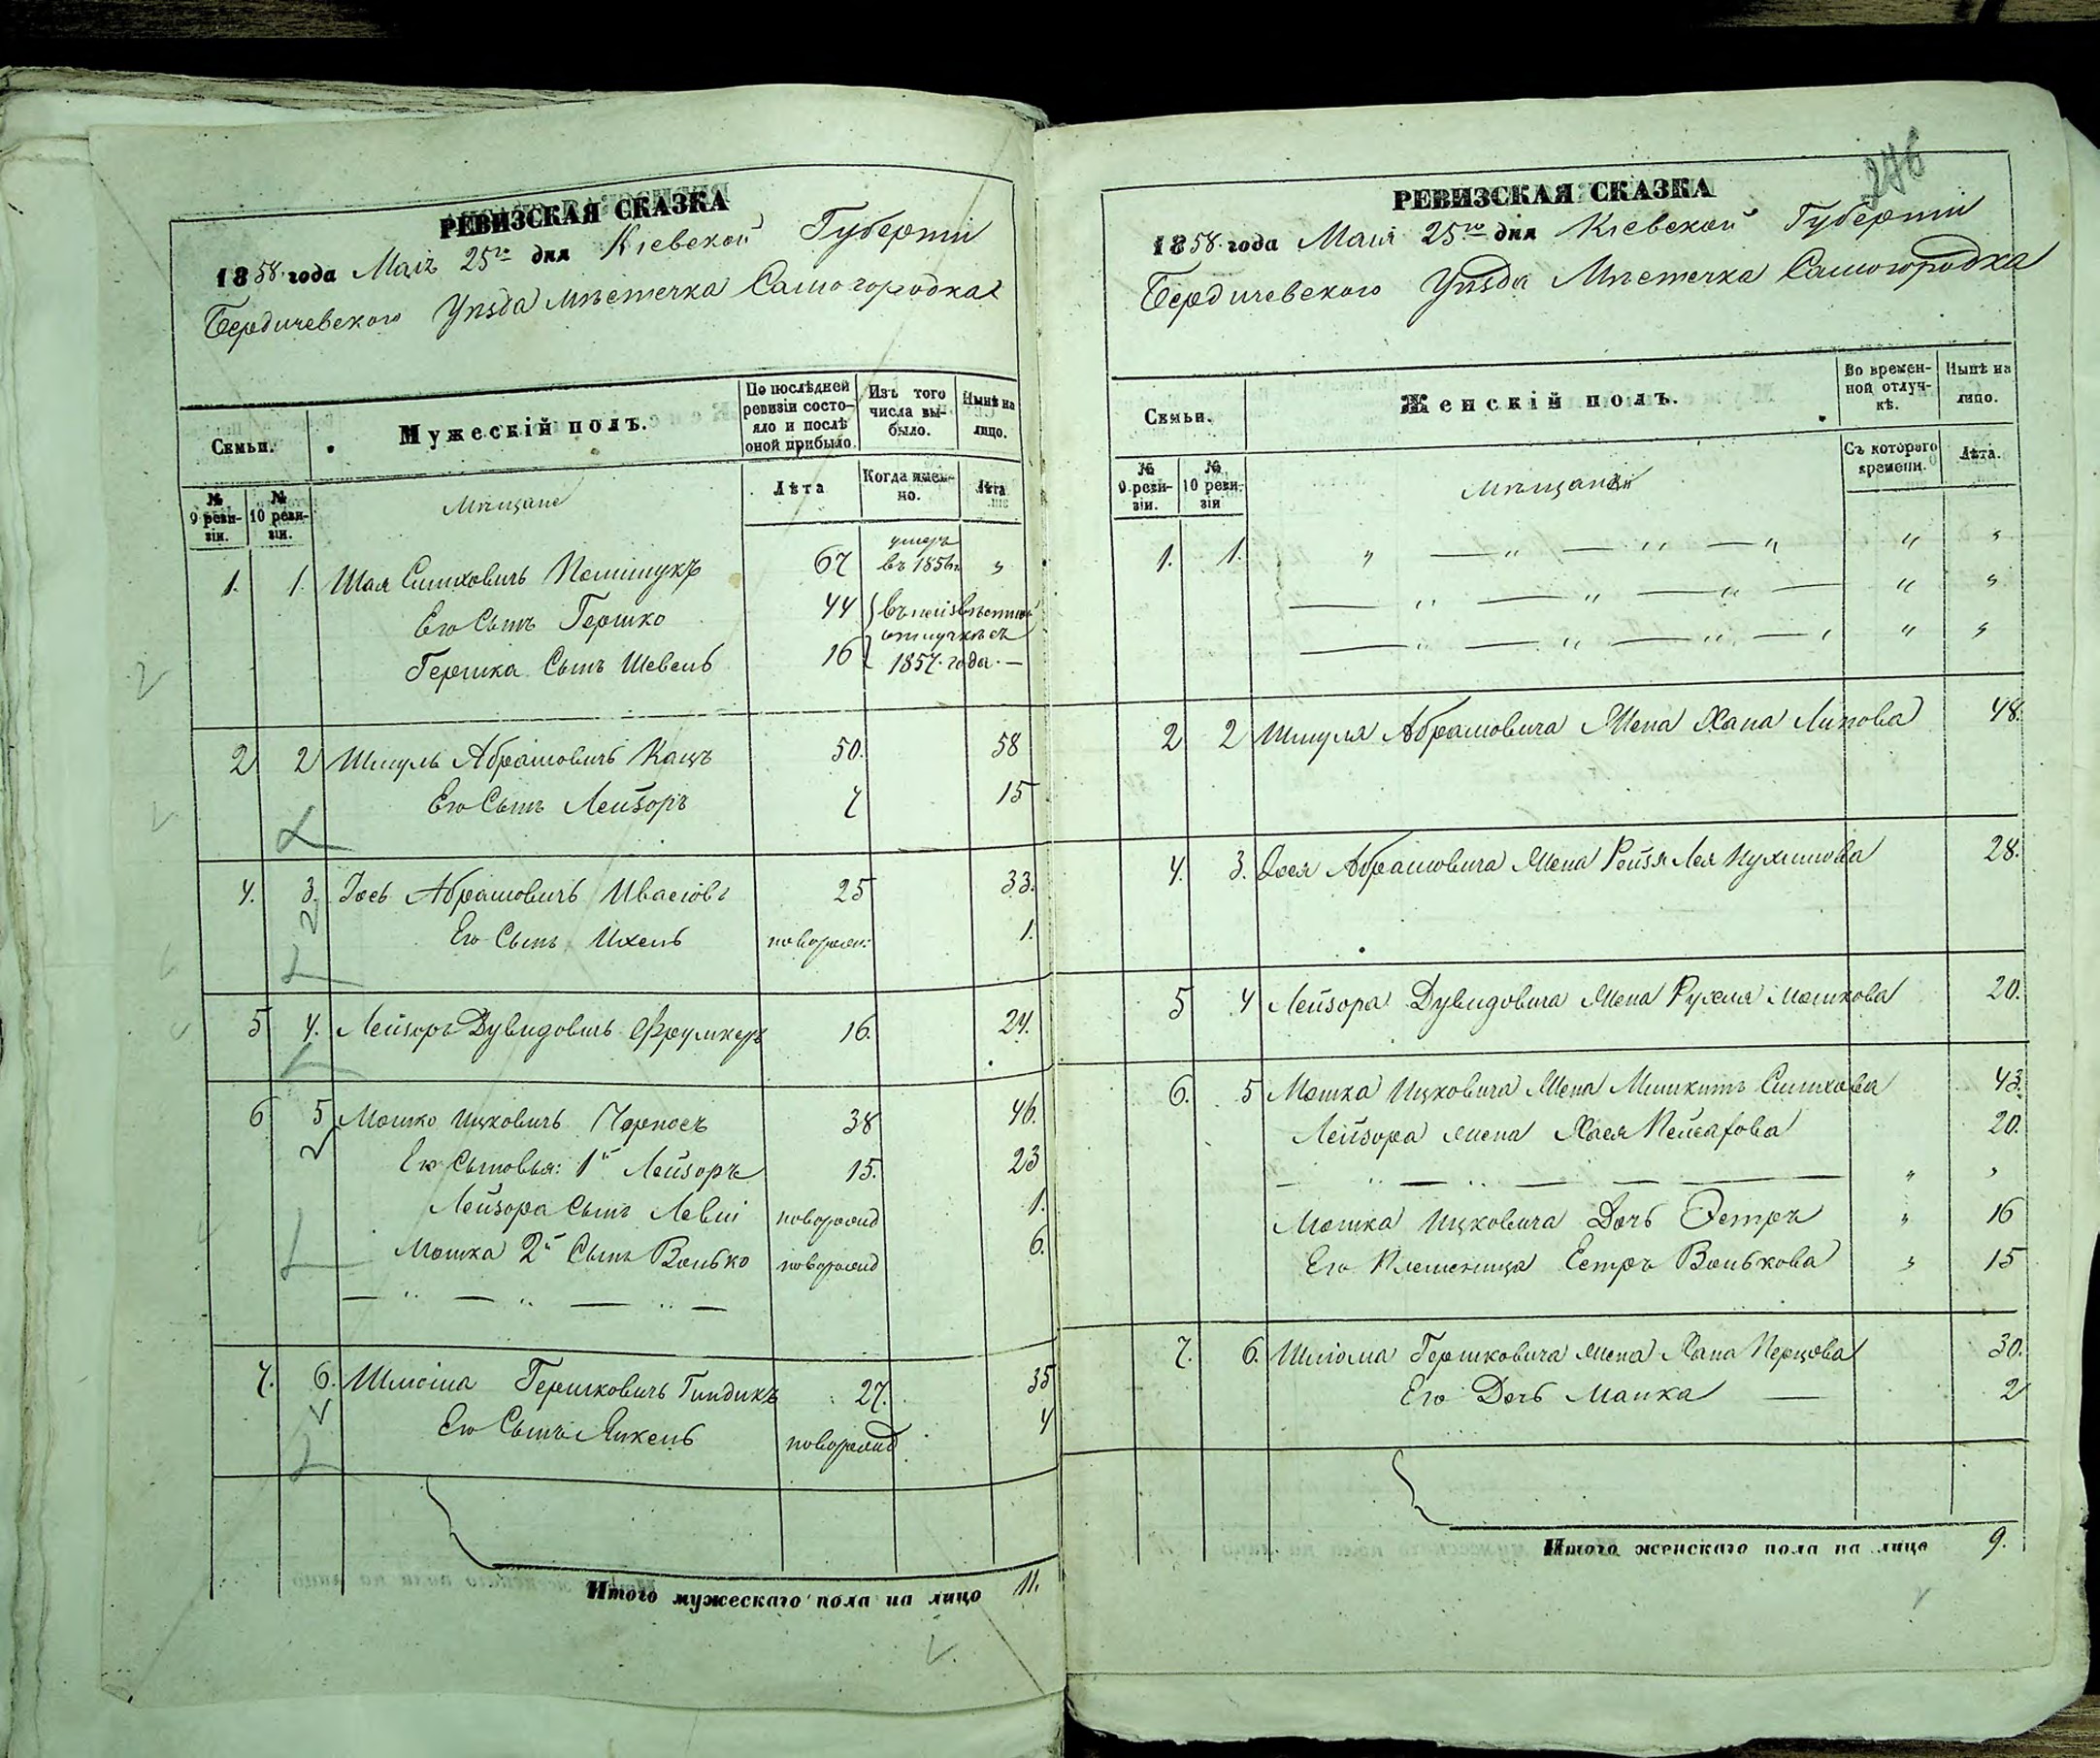 РЕВИЗСКАЯ СКАЗКА
1858 года Маія 25го дня Кіевской Губерніи
Бердичевского Уѣзда мѣстечка Самогородка
Семьи.
Мужескій полъ.
По послѣдней ревизіи состояло и послѣ оной прибыло.
Изъ того числа выбыло.
Нынѣ на лицо.
№ 9 ревизіи.
№ 10 ревизіи.
Мѣщане
Лѣта
Когда именно.
Лѣта
1. 1. Шая Симховичъ 67 умеръ въ 1856 г. "
Его Сынъ Гершко 44 въ неизвѣстной
Гершка Сынъ Шевель 16 отлучкѣ съ 1857 года. —
2 2 Шмуль Абрамовичъ Кацъ 50. 58
Его Сынъ Лейзоръ 7 15
4. 3. Іось Абрамовичъ 25 33.
Его Сынъ Ихель новорожд: 1.
5 4. Лейзоръ Дувидовичъ 16. 24.
6 5 Мошко Ицковичъ Чарносъ 38 46.
Его Сыновья: 1й Лейзоръ 15. 23
Лейзора Сынъ Левій новорожд 1.
Мошка 2й Сынъ Волько новорожд 6.
— " — " — " —
7. 6. Шліома Гершковичъ Гиндикъ 27. 35
Его Сынъ Янкель новорожд 4
Итого мужескаго пола на лицо 11.
246
РЕВИЗСКАЯ СКАЗКА
1858 года Маія 25го дня Кіевской Губерніи
Бердичевского Уѣзда Мѣстечка Самогородка
Семьи.
Женскій полъ.
Во временной отлучкѣ.
Нынѣ на лицо.
№ 9 ревизіи.
№ 10 ревизіи
Мѣщанки
Съ котораго времени.
Лѣта.
1. 1. " — " — " — " " "
— " — " — " — " "
— " — " — " — " " "
2 2 Шмуля Абрамовича Жена Хана Липова 48.
4. 3. Іося Абрамовича Жена Рейзя Лея 28.
5 4 Лейзора Дувидовича Жена Рухля Мошкова 20.
6. 5 Мошка Ицковича Жена Симхова 43.
Лейзора жена Хася 20.
— " — " — — — " "
Мошка Ицковича Дочь Эстръ " 16
Его Племеница Естръ Волькова " 15
7. 6. Шліома Гершковича жена Хана Перцова 30.
Его Дочь Малка — 2
Итого женскаго пола на лицо 9.